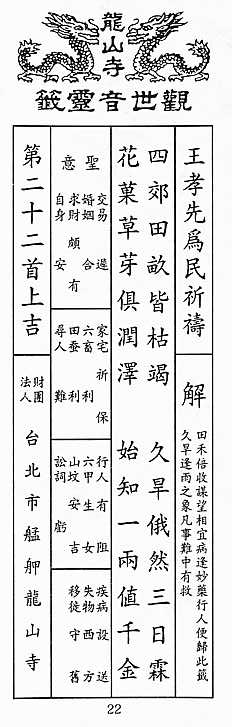 龍山寺
觀世音靈籤
王孝先爲民祈禱
解
田禾倍收謀望相宜病逢妙藥行人便歸此籤
久旱逢雨之象凡事難中有救
四郊田畝皆枯竭 久旱俄然三日霖
花菓草芽俱潤澤 始知一雨值千金
聖意
交易
婚姻 合
求財 頗有
自身 安
家宅 保
六畜 利
田蚕 利
尋人 難
行人 有阻
六甲 生女
山坟 安吉
訟詞 虧
疾病 設送
失物 西方
移徙 守舊
第二十二首上吉
財團
法人
台北市艋舺龍山寺
22